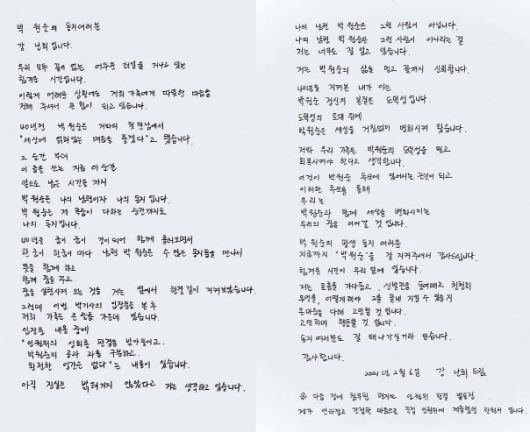 박 원순의 동지여러분
강 난희입니다.
우리 모두 끝이 없는 어두운 터널을 지나고 있는
힘겨운 시간입니다.
이렇게 어려운 상황에도 저희 가족에게 따뜻한 마음을
전해 주셔서 큰 힘이 되고 있습니다.
40년전 박원순은 저와의 첫만남에서
"세상에 얽혀있는 매듭을 풀겠다"고 했습니다.
그 순간 부터
이 글을 쓰는 지금 이순간
앞으로 남은 시간들 까지
박원순은 나의 남편이자 나의 동지 입니다.
박원순은 제 목숨이 다하는 순간까지도
나의 동지입니다.
40년을 함께 하고
꿈을 실현시켜 나가는 것을 저는 옆에서 한결같이 지켜보았습니다.
그런데 이번 박기사의 입장문을 본 후
저희 가족은 큰 슬픔 가운데 있습니다.
입장문 내용 중에
"인권위의 성희롱 판결을 받아들이고,
박원순의 공과 과를 구분하고,
완전한 인간은 없다"는 내용이 있습니다.
아직 진실은 밝혀지지 않았다고 저는 생각하고 있습니다.
나의 남편 박원순은 그런 사람이 아닙니다.
나의 남편 박원순은 그런 사람이 아니라는 걸
저는 너무도 잘 알고 있습니다.
저는 박원순의 삶을 믿고 끝까지 신뢰합니다.
40년을 지켜본 내가 아는
박원순 정신의 본질은 도덕성입니다.
도덕성의 토대 위에
박원순은 세상을 거침없이 변화시켜 왔습니다.
저와 우리 가족은 박원순의 도덕성을 믿고
회복시켜야 한다고 생각합니다.
이것이 박원순 추모에 있어서는 근간이 되고
이러한 추모를 통해
우리는
박원순과 함께 세상을 변화시키는
우리의 길을 이어갈 것 입니다.
박원순의 평생 동지 여러분
지금까지 "박원순"을 잘 지켜주셔서 감사드립니다.
힘겨운 시간이 우리 앞에 있습니다.
저는 호흡을 가다듬고, 신발끈을 동여매고 천천히
무엇을, 어떻게해야 그를 끝내 지킬 수 있을지
온마음을 다해 고민할 것 입니다.
고민하며 행동할 것 입니다.
동지 여러분도 잘 해나가실거라 믿습니다.
감사합니다.
2021년 2월 6일 강 난희 드림
다음 장에 첨부된 편지는 인권위의 판결 발표전,
제가 안타깝고 간절한 마음으로 직접 인권위에 제출했던 탄원서 입니다.